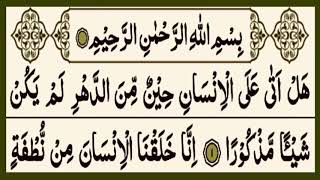 بِسْمِ اللهِ الرَّحْمٰنِ الرَّحِيْمِ
هَلْ اَتٰى عَلَى الْاِنْسَانِ حِيْنٌ مِّنَ الدَّهْرِ لَمْ يَكُنْ
شَيْئًا مَّذْكُوْرًا ۝۱ اِنَّا خَلَقْنَا الْاِنْسَانَ مِنْ نُّطْفَةٍ